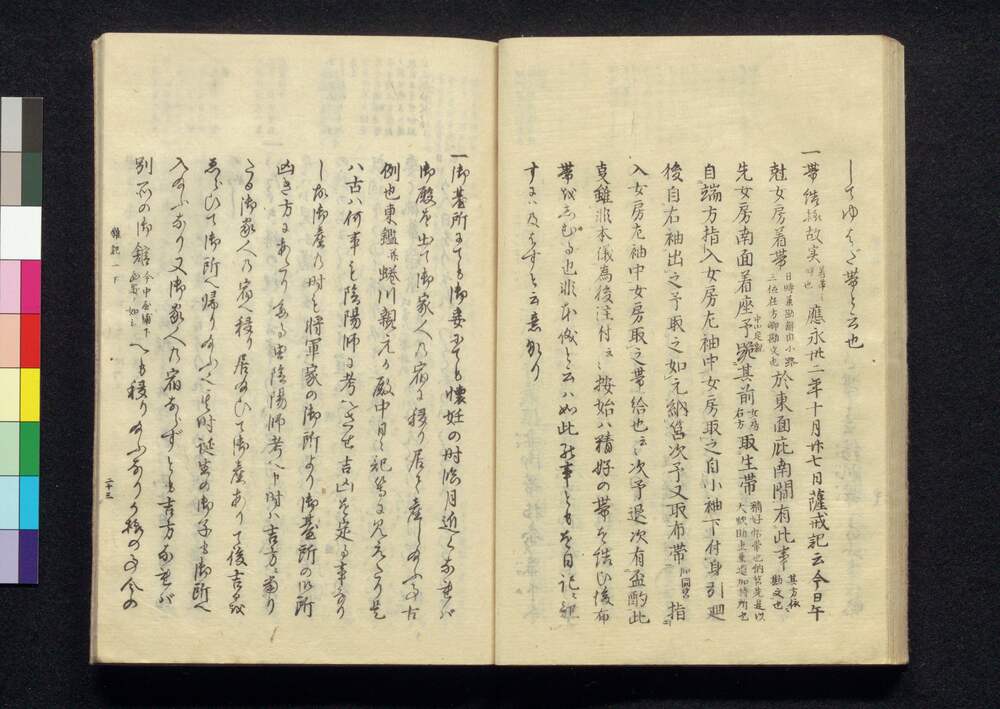 してゆはだ帯と云也
一帯結様故実 応永卅二年十月廿七日薩戒記云今日午
尅女房着帯 於東面庇南間有此事 其方依勘文也
先女房南面着座予跪其前 女房右方 取生帯
自端方指入女房左袖中女房取之自小袖下付身引廻
後自右袖出之予取之如元納筥次予又取布帯 指
入女房左袖中女房取之帯給也云々次予退次有盃酌此
真雖非本儀為後注付云々按始ハ精好の帯を結ひ後布
帯を也非本儀と云ハ如此の事とも日記に記
すにハ及はすと云意なり
一御台所にても御妾にても懐妊の時臨月近くなれバ
御殿を出て御家人の宿に移り居て産しめ給ふ古
例也東鑑并蜷川親元の殿中日々記等に見えたり是
ハ古ハ何事も陰陽師に考へさせ吉凶を定る事なり
しが御産の時も将軍家の御所より御台所の御所
凶き方にあたり ある由陰陽師考へ申時ハ吉方に当り
たる御家人の宿へ移り居給ひて御産ありて後吉日を
ゑらひて御所へ帰り給ふへき時誕生の御子も御所へ
入給ふなり又御家人の宿ならずとも吉方なれバ
別所の御館 へも移り給ふなり今の
雑記一下
二十三